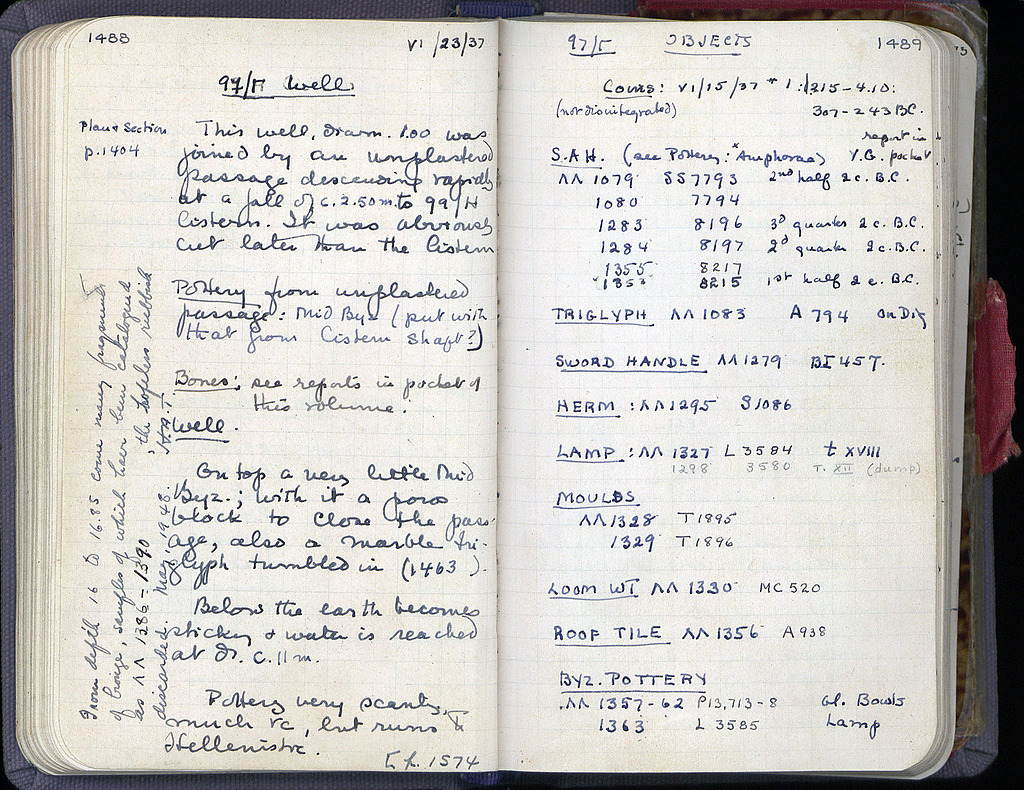 1488
VI/23/37
97/Π Well
Plan + Section
p. 1404
This well, diam. 1.00 was
joined by an unplastered
passage descending rapidly
at a fall of c. 2.50 m. to 99/Η
Cistern. It was obviously
cut later than the Cistern
Pottery from unplastered
passage: Mid Byz (put with
that from Cistern Shaft?)
Bones: see reports in pocket of
this volume.
Well.
On top a very little Mid
Byz.; with it a poros
block to close the pass-
age, also a marble tri-
glyph tumbled in (1463).
Below the earth becomes
sticky & water is reached
at D. c. 11 m.
Pottery very scanty,
much rc, but runs
Hellenistic.
[p. 1574
From depth 16 to 16.85 come many fragments
of bronze, samples of which have been catalogued
as ΛΛ 1386-1390, the hopeless rubbish
discarded May, 1948. H.A.T.
97/Γ OBJECTS
1489
Coins: VI/15/37 # 1: 215-4.10:
(not disintegrated) 307-243 BC.
report in
S.A.H. (see Pottery: *Amphorae) V.G. pocket
ΛΛ 1079 SS7793 2nd half 2 c. B.C.
1080 7794
1283 8196 3d quarter 2 c. B.C.
1284 8197 2d quarter 2 c. B.C.
1355 8217
8215 1st half 2 c. B.C.
TRIGLYPH ΛΛ 1083 A 794 On Dig
SWORD HANDLE ΛΛ 1279 BI 457.
HERM: ΛΛ 1295 S 1086
LAMP: ΛΛ 1327 L 3584 t XVIII
1298 3580 T. XII (dump)
MOULDS
ΛΛ 1328 T 1895
1329 T 1896
LOOM WT ΛΛ 1330 MC 520
ROOF TILE ΛΛ 1356 A 938
BYZ. POTTERY
ΛΛ 1357-62 P13,713-8 Gl. Bowls
1363 L 3585 Lamp